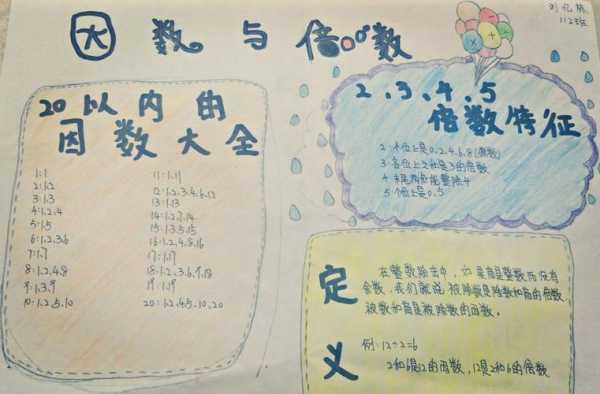 因数与倍数
112班
20以内的
因数大全
1:1
2:1.2
3:1.3
4:1.2.4
5:1.5
6:1.2.3.6
7:1.7
8:1.2.4.8
9:1.3.9
10:1.2.5.10
11:1.11
12:1.2.3.4.6.12
13:1.13
14:1.2.7.14
15:1.3.5.15
16:1.2.4.8.16
17:1.17
18:1.2.3.6.9.18
19:1.19
20:1.2.4.5.10.20
2、3、4、5
倍数特征
2 个位上是0.2.4.6.8(偶数)
3 各位上之和是3的倍数
4 末尾两位能整除4
5 个位上是0.5
定义
在整数除法中,如果商是整数而没有
余数,我们就说被除数是除数和商的倍数,
除数和商是被除数的因数。
例:12÷2=6
2和6是12的因数,12是2和6的倍数